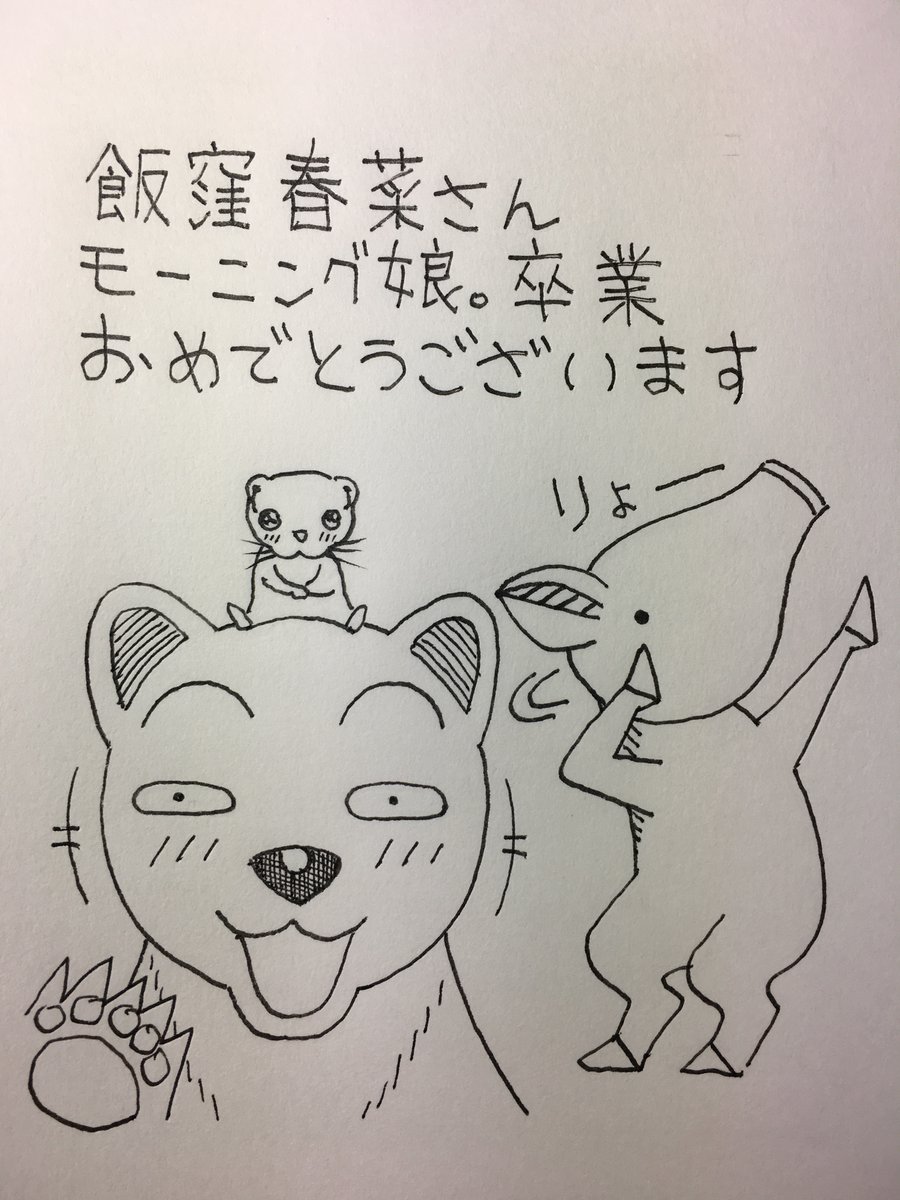 飯窪春菜さん
モーニング娘。卒業
おめでとうございます
りょー